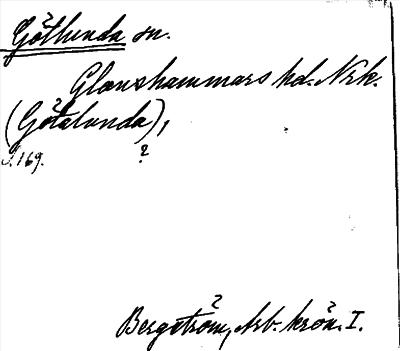 Götlunda sn.
Glanshammars hd. Nrk.
(Götalunda),
s. 169. ?
Bergström, Arb. krön. I.